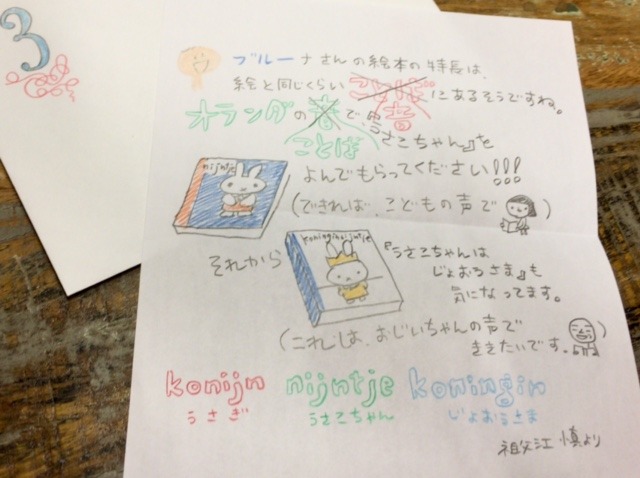 3
ブルーナさんの絵本の特長は、
絵と同じくらいことばにあるそうですね。
音
オランダの音で、『うさこちゃん』を
ことば
nijntje
よんでもらってください!!!
(できれば、こどもの声で)
それから
koninginnijntje
『うさこちゃんは
じょおうさま』も
気になってます。
(これは、おじいちゃんの声で
ききたいです。)
konijn nijntje koningin
うさぎ うさこちゃん じょおうさま
祖父江 慎より